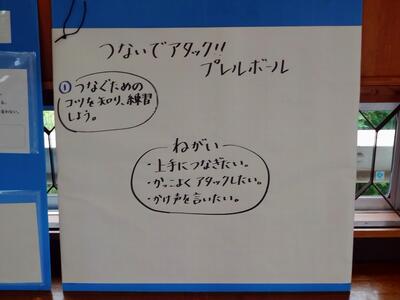 つないでアタック!!
プレルボール
① つなぐための
コツを知り、練習
しよう。
ねがい
・上手につなぎたい。
・かっこよくアタックしたい。
・かけ声を言いたい。